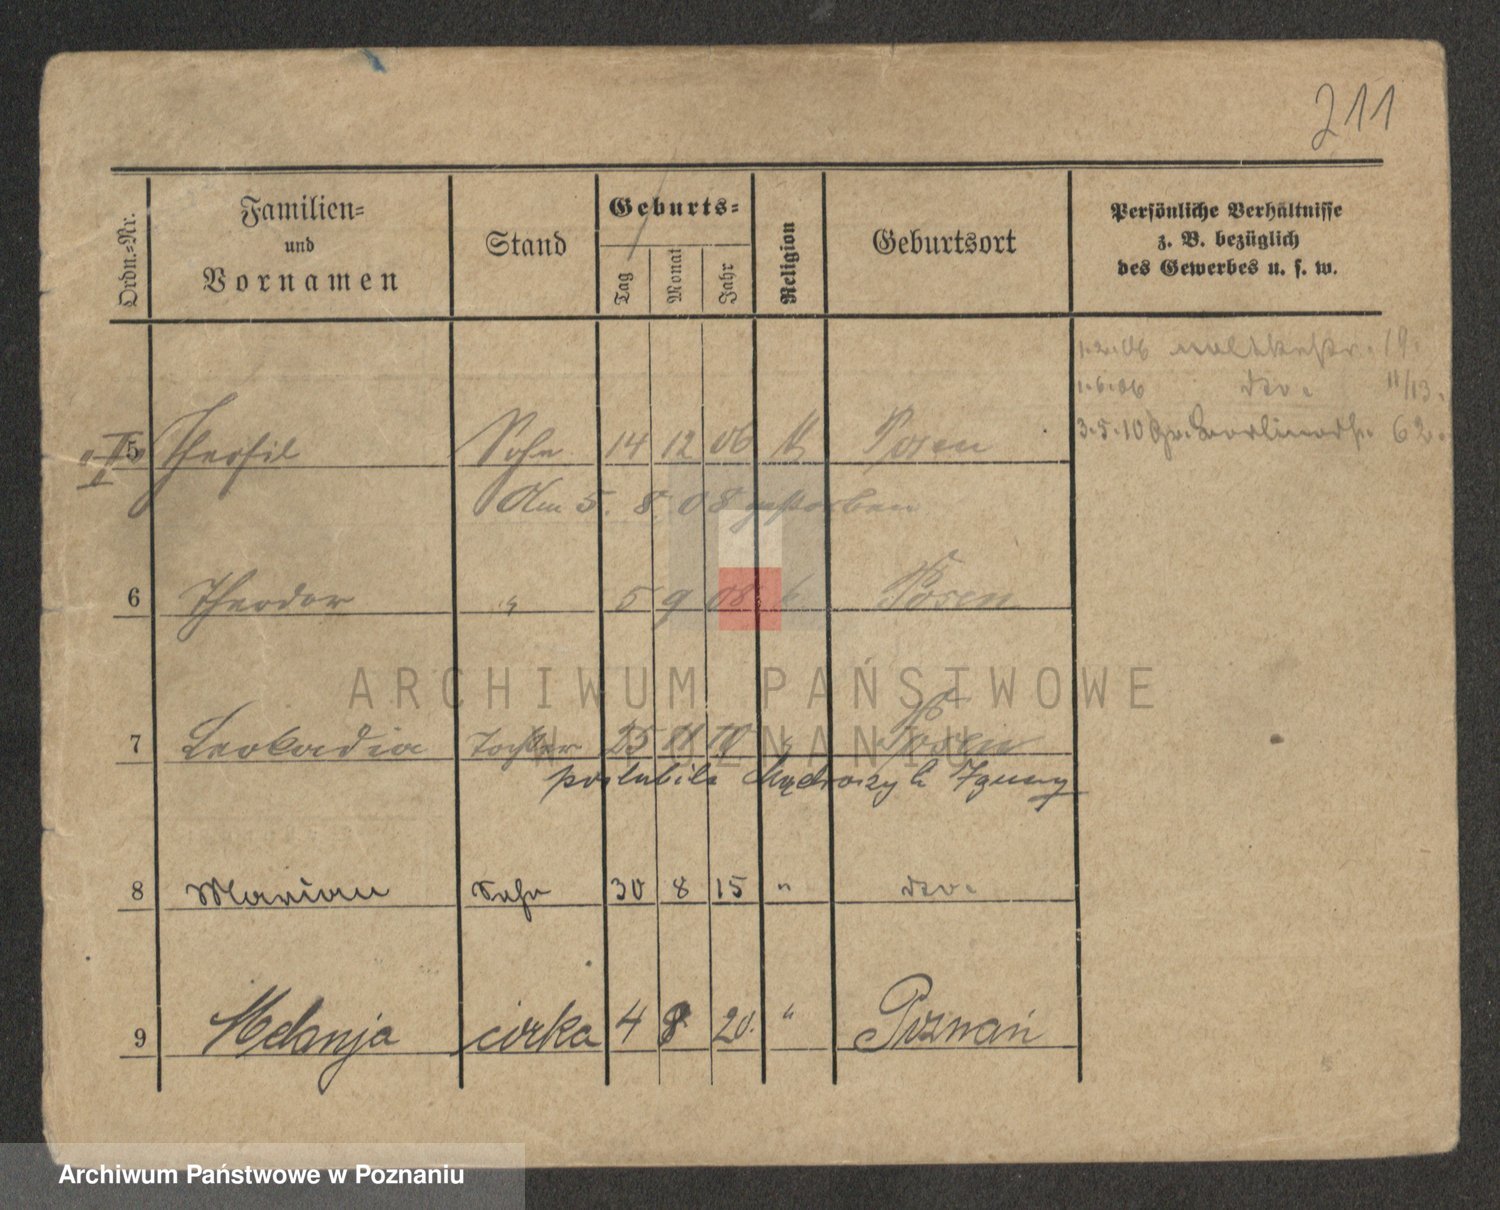 211
Ordn.-Nr.
Familien-
und
Vornamen
Stand
Geburts-
Tag
Monat
Jahr
Religion
Geburtsort
Persönliche Verhältnisse
z. B. bezüglich
des Gewerbes u. s. w.
1.2.06 Moltkestr. 19.
1.6.06 dto. 11/13.
3.5.10 Gr. Berlinerstr. 62.
5 Theofil Sohn 14 12 06 k Posen
Am 5. 8. 08 gestorben
6 Theodor " 5 9 08 k Posen
7 Leokadia Tochter 25 11 10 " Posen
poslubila Ignacy
8 Marian Sohn 30 8 15 " dto.
9 Melanja córka 4 8 20. " Poznań
ARCHIWUM PAŃSTWOWE
W POZNANIU
Archiwum Państwowe w Poznaniu